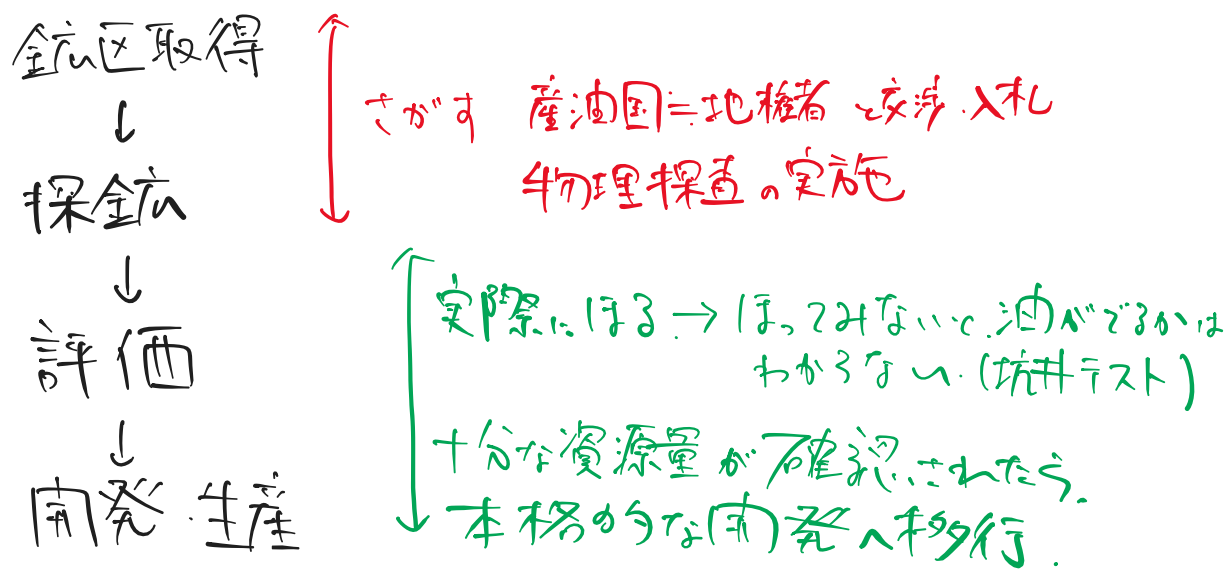 鉱区取得
↓
探鉱
↓
評価
↓
開発・生産
さがす 産油国≒地権者と交渉・入札
物理探査の実施
実際にほる→ほってみないと油がでるかは
わからない.(坑井テスト)
十分な資源量が確認されたら、
本格的な開発へ移行.